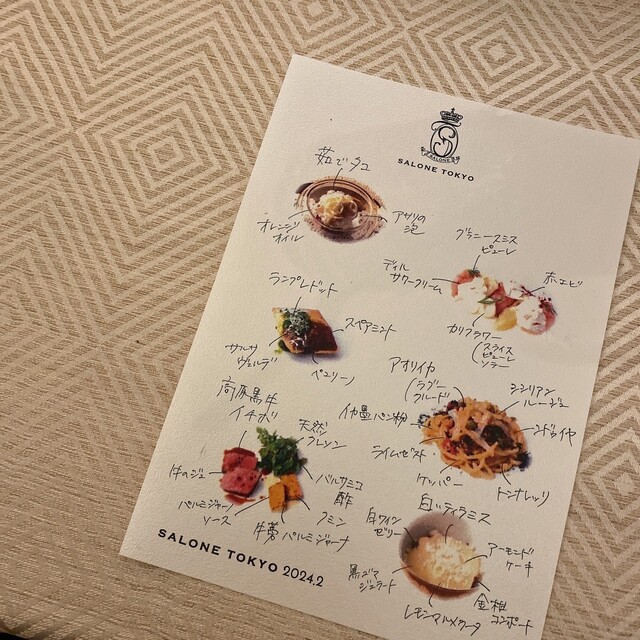 SALONE
SALONE TOKYO
茹でタコ
オレンジ
オイル
アサリの
泡
グラニースミス
ピューレ
ディル
サワークリーム
赤エビ
カリフラワー
スライス
ピューレ
ソテー
ランプレドット
スペアミント
サルサ
ヴェルデ
ペコリーノ
アオリイカ
ラグー
クルード
シシリアン
ルージュ
イカ墨パン粉
ライムゼスト
ケッパー
トンナレッリ
高原黒牛
イチボ
天然
クレソン
牛のジュ
バルサミコ
酢
パルミジャーノ
ソース
クミン
牛蒡パルミジャーナ
白いティラミス
白ワイン
ゼリー
アーモンド
ケーキ
黒ゴマ
ジェラード
レモンマルメラータ
金柑
コンポート
SALONE TOKYO 2024.2